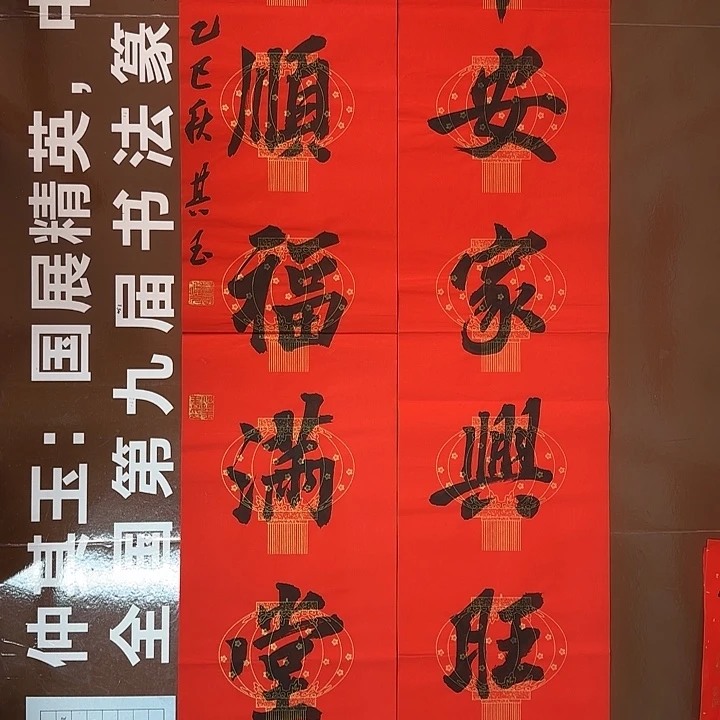 安家興旺
順福滿堂
乙巳秋其玉
仲其玉：国展精英，中
全国第九届书法篆